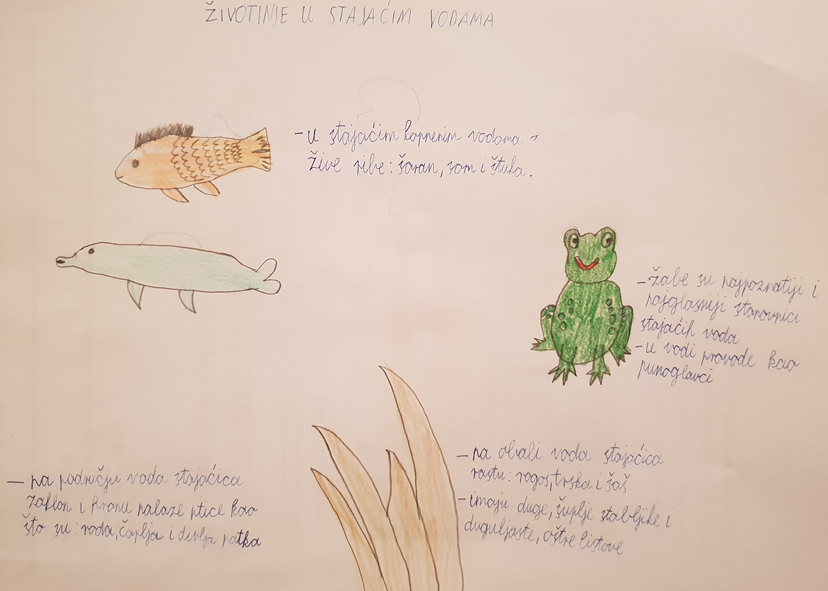 ŽIVOTINJE U STAJAĆIM VODAMA
- u stajaćim kopnenim vodama
žive ribe: šaran, som i štuka.
- žabe su najpoznatiji i
najglasniji stanovnici
stajaćih voda
- u vodi provode kao
punoglavci
- na obali voda stajaćica
rastu: rogoz, trska i šaš
- imaju duge, šuplje stabljike i
duguljaste, oštre listove
- na području voda stajaćica
zaklon i hranu nalaze ptice kao
što su: roda, čaplja i divlja patka